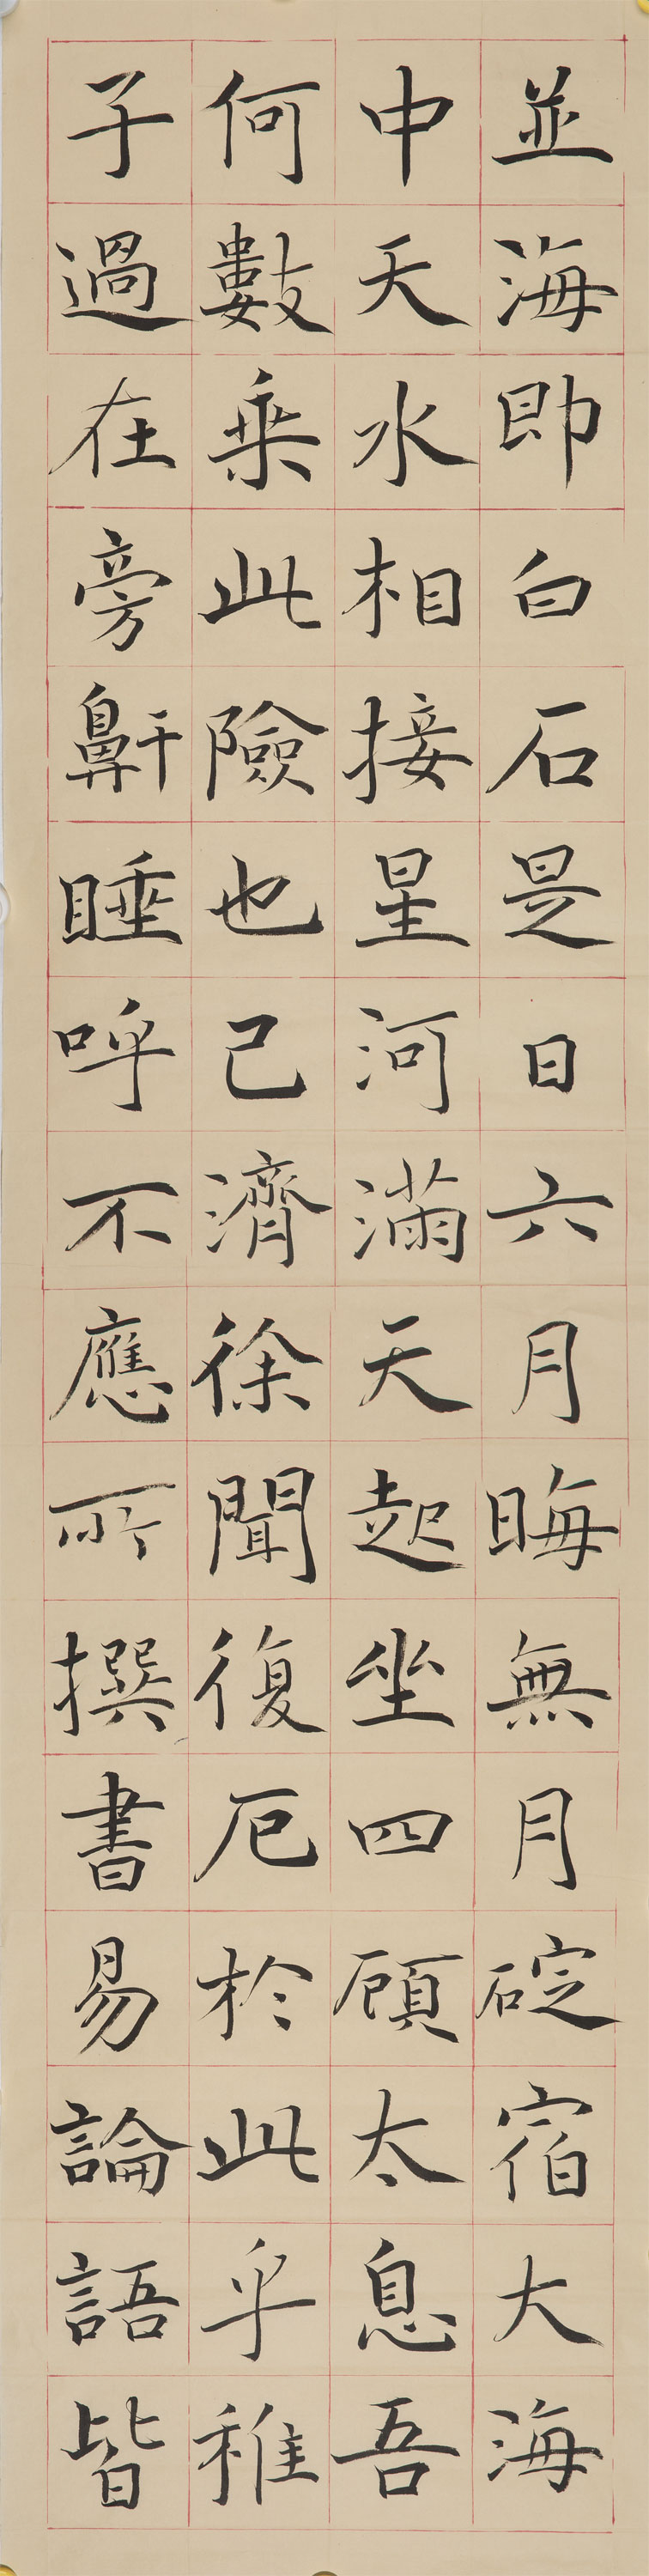 並海即白石是日六月晦無月碇宿大海
中天水相接星河滿天起坐四顧太息吾
何數乗此險也已濟徐聞復厄於此乎稚
子過在旁鼾睡呼不應所撰書易論語皆